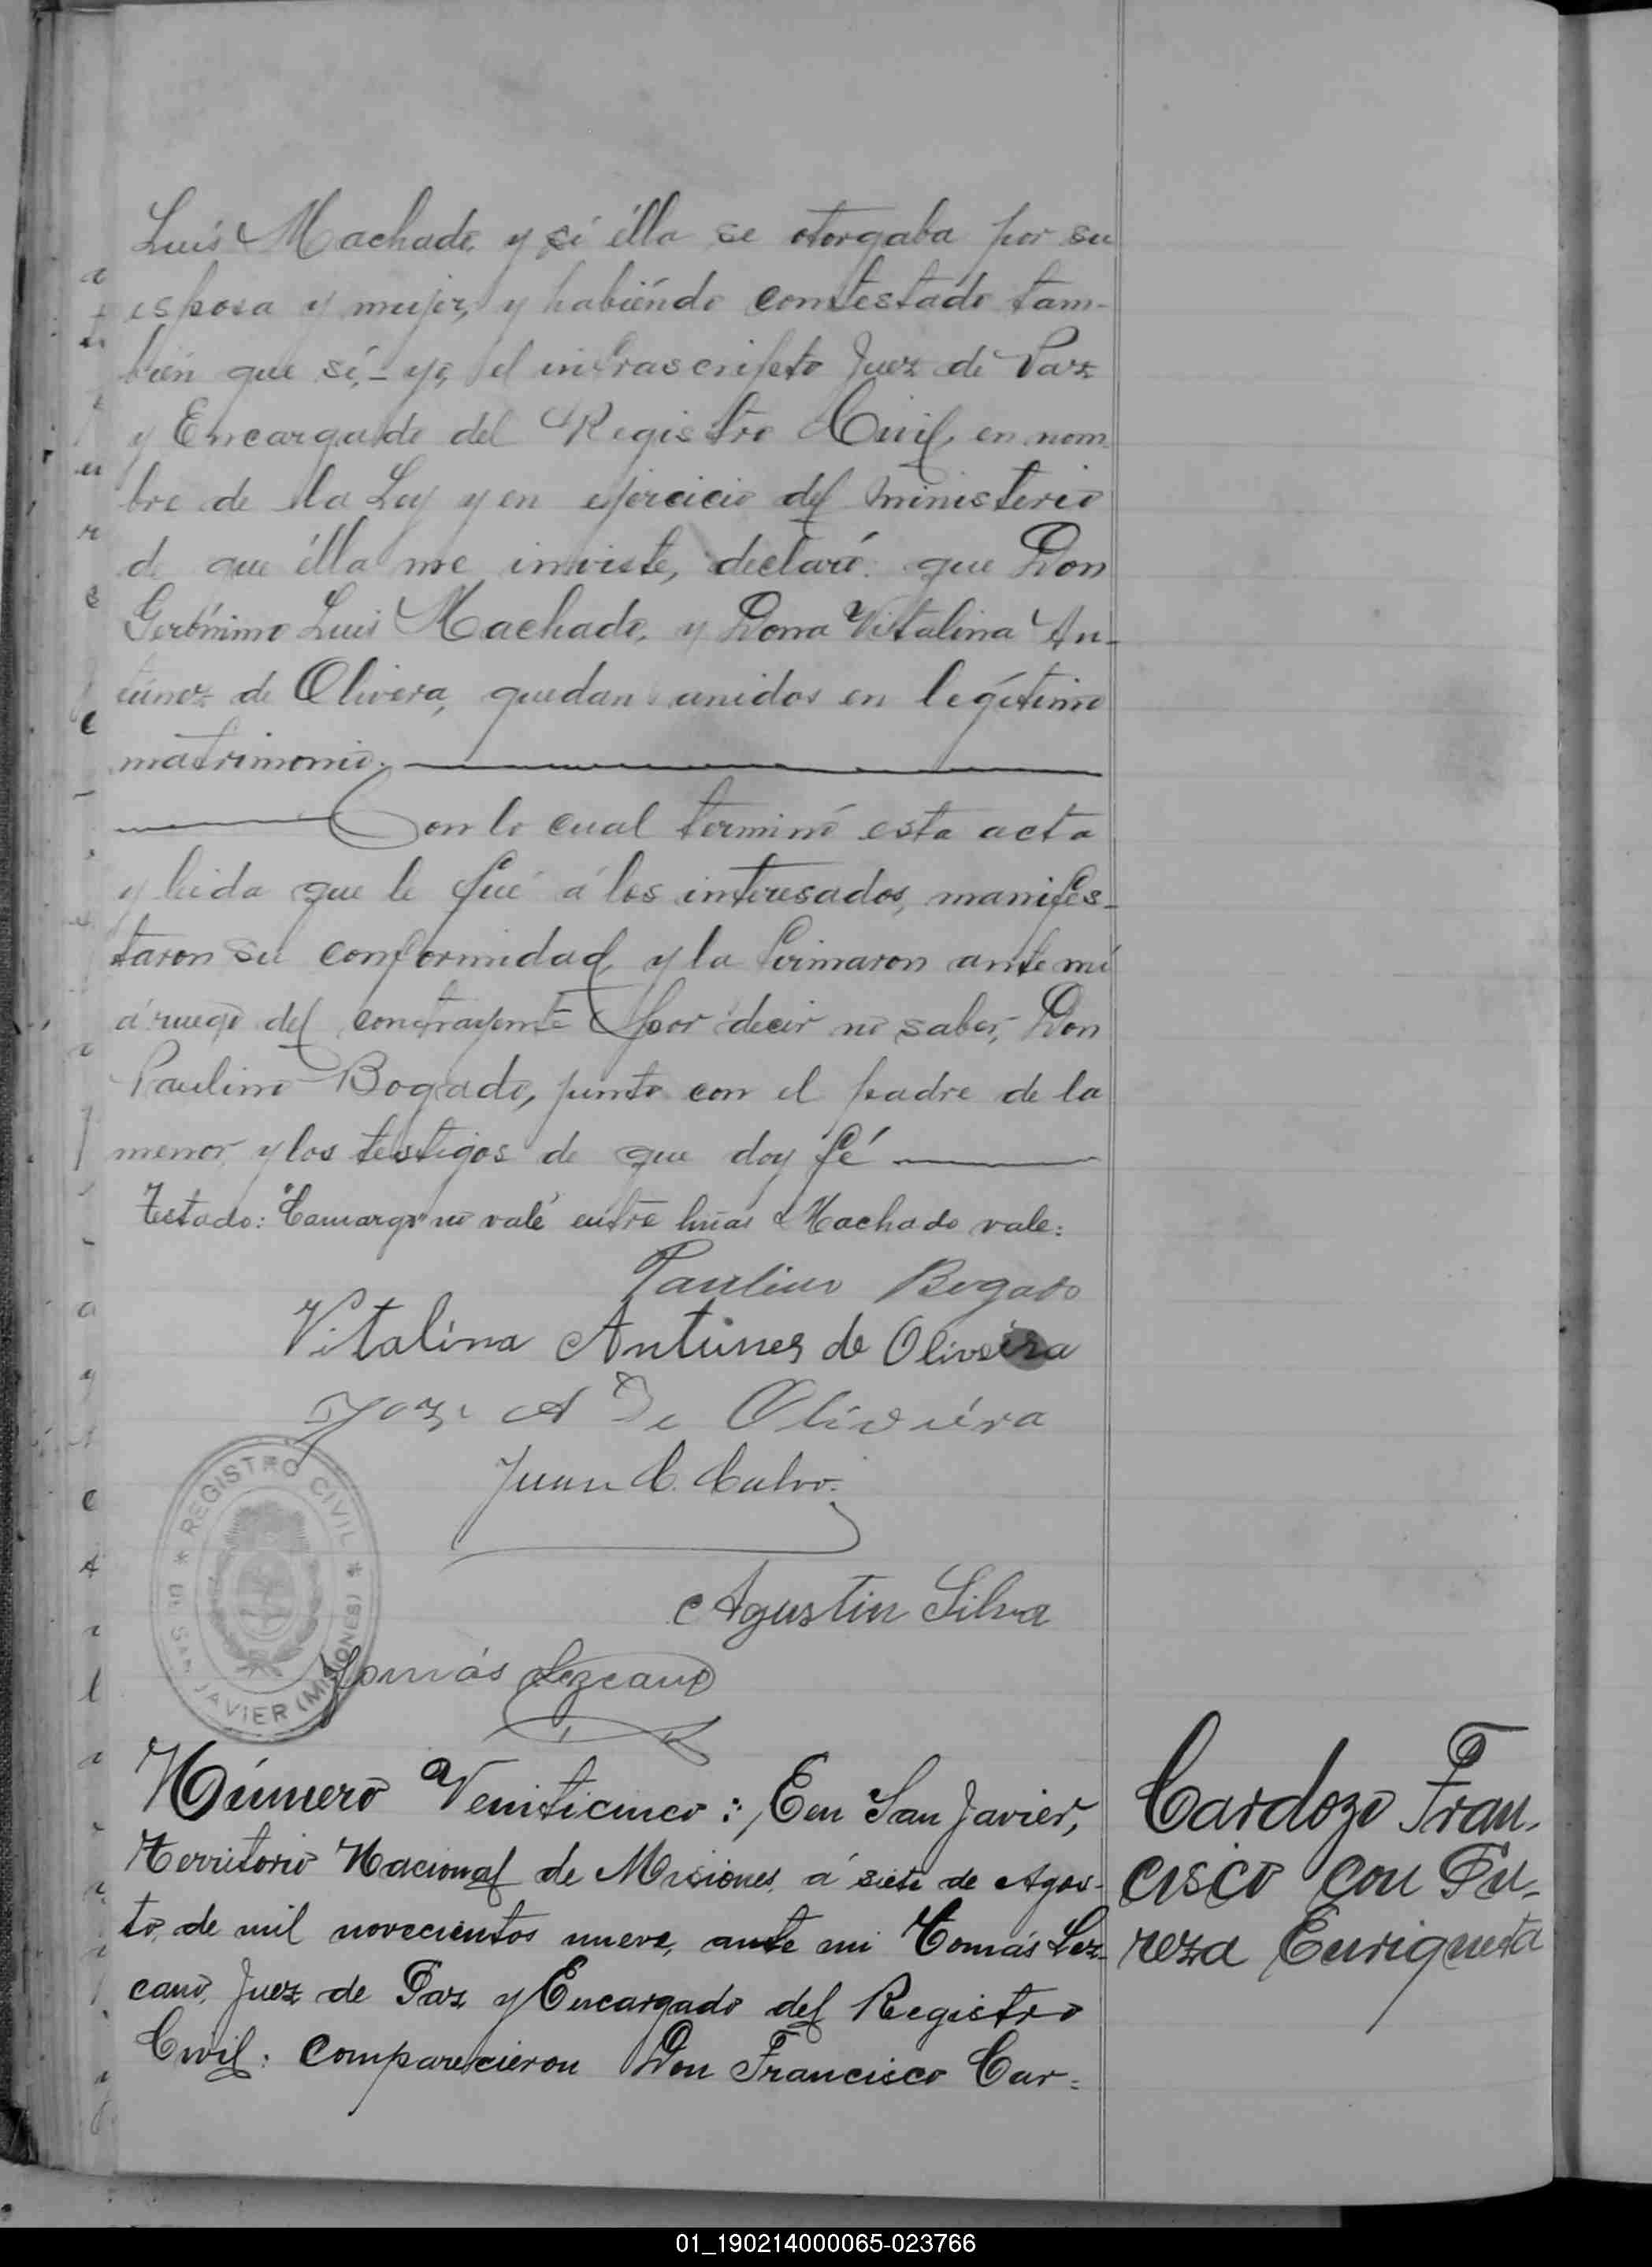 Luis Machado, y si élla se otorgaba por su
esposa y mujer, y habiéndo contestado tam-
bien que sí,- yo, el infrascripto Juez de Paz
y Encargado del Registro Civil, en nom
bre de la Ley y en ejercicio del ministerio
de que élla me inviste, declaré: que Don
Gerónimo Luis Machado, y Dona Vitalina An-
túnez de Olivera, quedan unidos en legítimo
matrimonio.
Con lo cual terminó esta acta
y leida que le fué á los interesados, manifes-
taron su conformidad, y la firmaron ante mí
á ruego del contrayente por decir no saber, Don
Paulino Bogado, junto con el padre de la
menor, y los testigos de que doy fé
Testado: "Camargo" no vale entre liñas Machado vale:
Paulino Bogado
Vitalina Antunes de Oliveira
A De Oliviéra
Juan C. Calvo.
REGISTRO CIVIL
DE SAN JAVIER (MISIONES)
Agustin Silva
Tomás Lezcano
Número Veniticinco: En San Javier,
Territorio Nacional de Misiones, á siete de Agos-
to, de mil novecientos nueve, ante mi Tomás Lez-
cano, Juez de Paz y Encargado del Registro
Civil: Comparecieron Don Francisco Car=
Cardozo Fran-
cisco con Pe-
reza Enriqueta
01_190214000065-023766